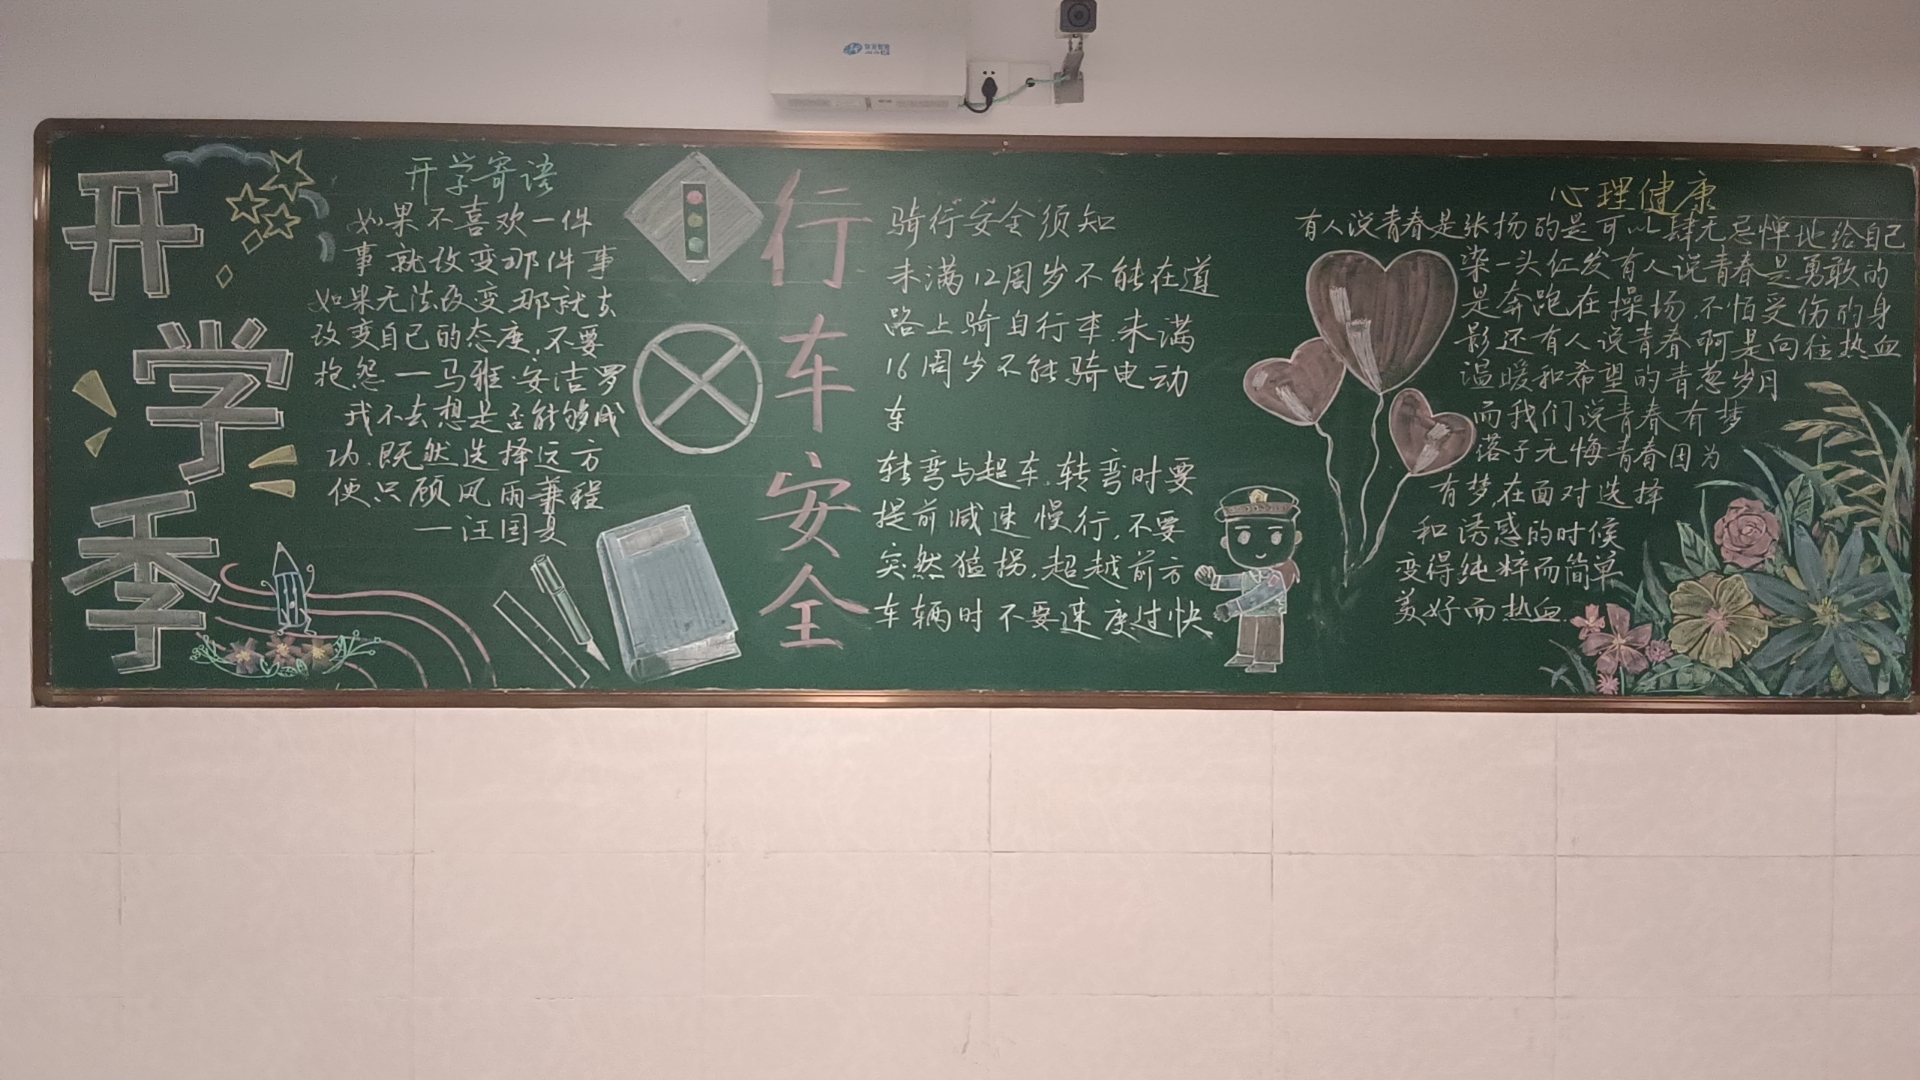 开学季
开学寄语
如果不喜欢一件
事就改变那件事
如果无法改变那就去
改变自己的态度.不要
抱怨—马雅·安洁罗
我不去想是否能够成
功.既然选择远方
便只顾风雨兼程
—汪国真
行车安全
骑行安全须知
未满12周岁不能在道
路上骑自行车.未满
16周岁不能骑电动
车
转弯与超车.转弯时要
提前减速慢行,不要
突然猛拐.超越前方
车辆时不要速度过快
心理健康
有人说青春是张扬的是可以肆无忌惮地给自己
染一头红发有人说青春是勇敢的
是奔跑在操场不怕受伤的身
影还有人说青春啊是向往热血
温暖和希望的青葱岁月
而我们说青春有梦
落子无悔青春因为
有梦,在面对选择
和诱惑的时候
变得纯粹而简单
美好而热血.